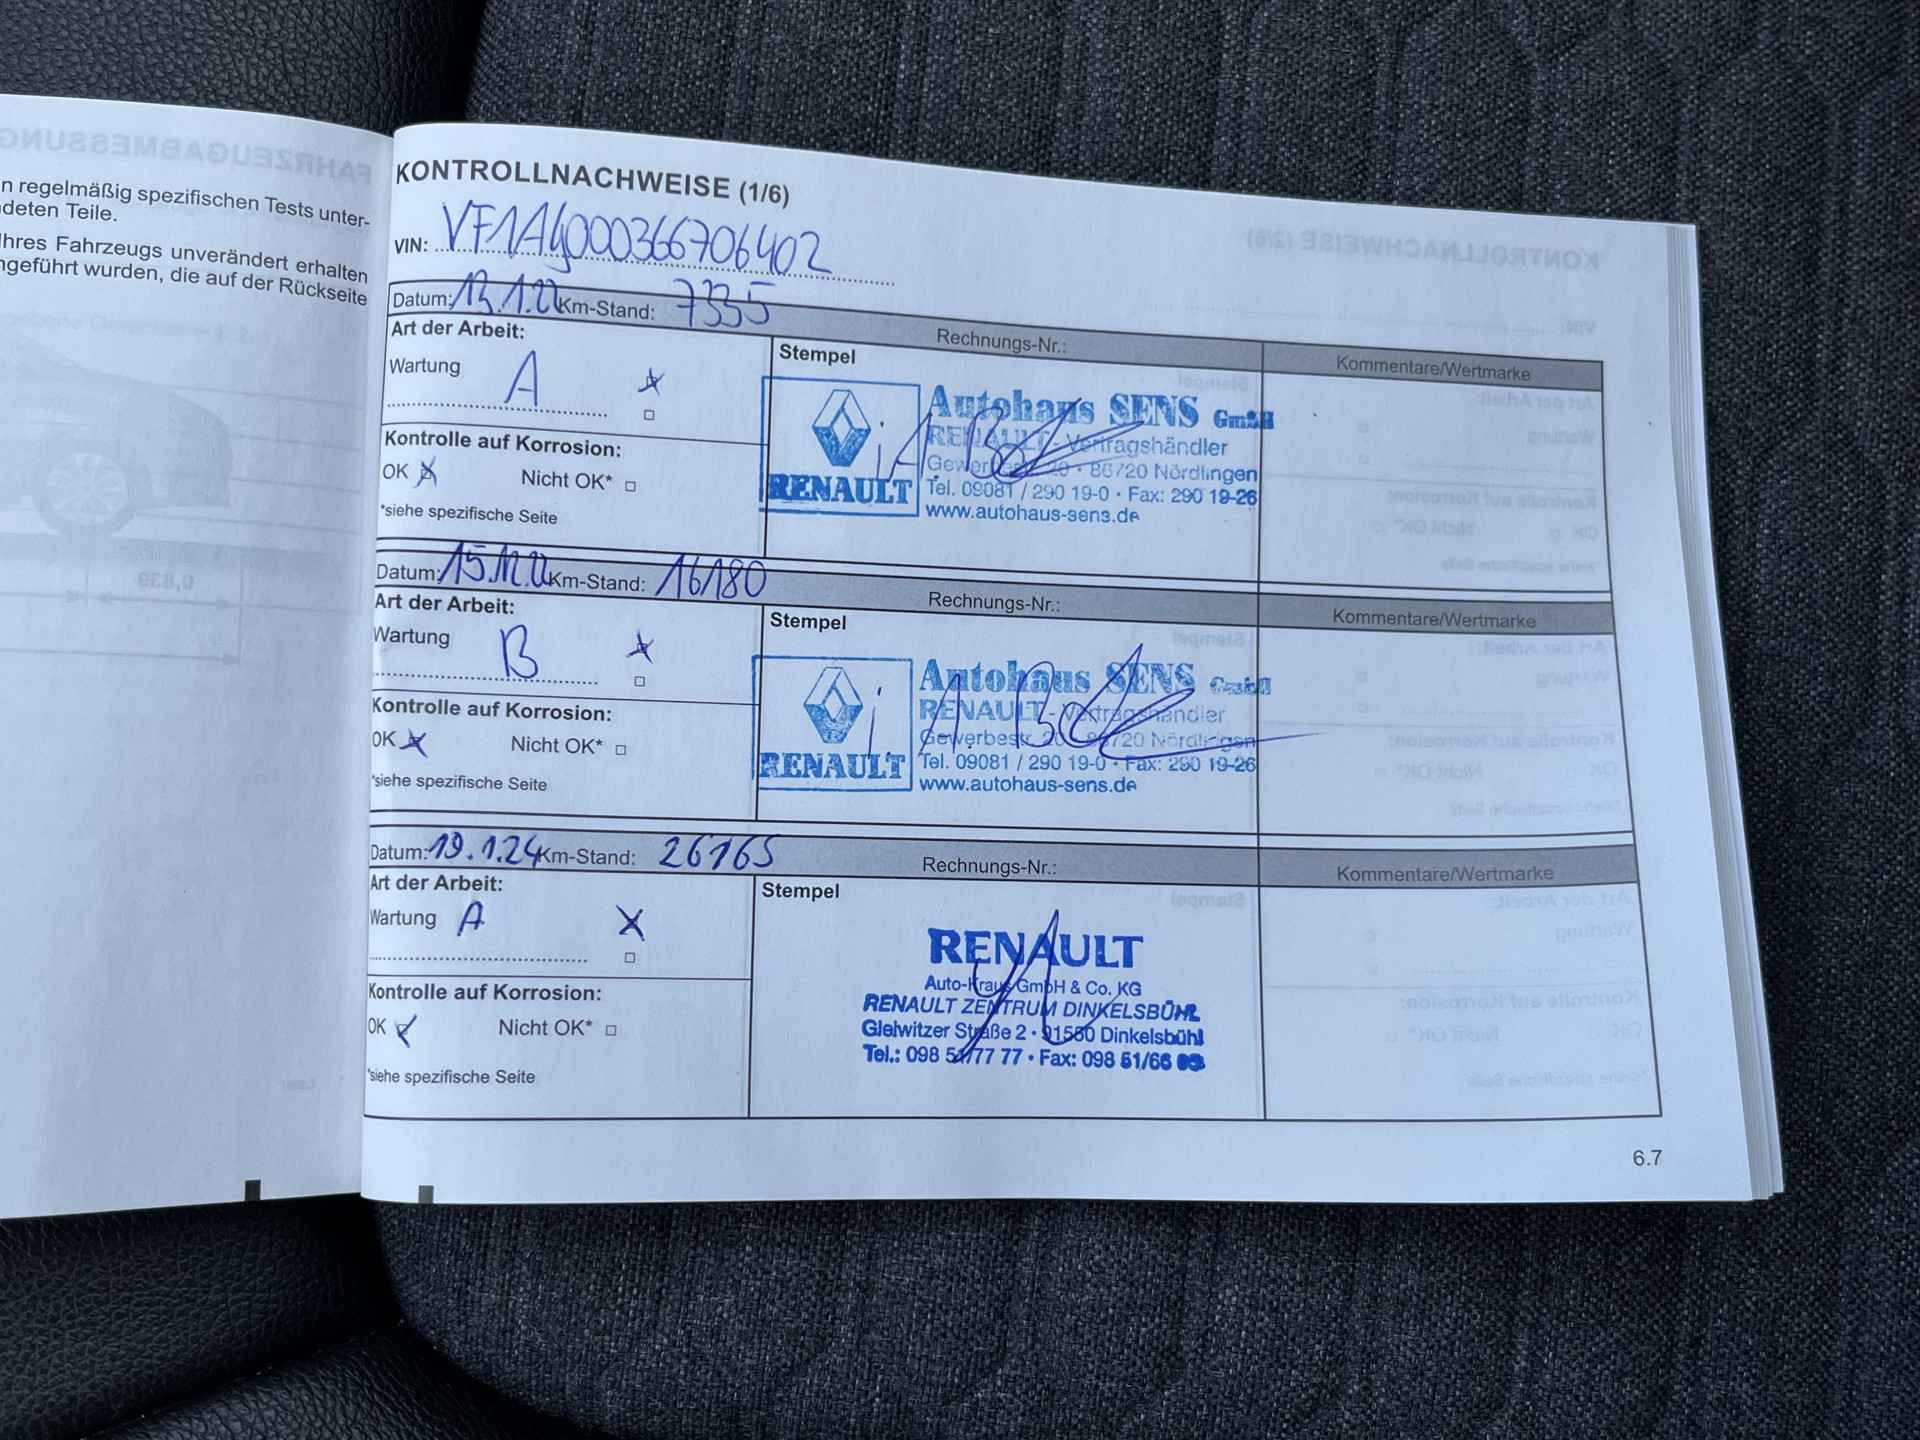 n regelmäßig spezifischen Tests unter-
deten Teile.
Ihres Fahrzeugs unverändert erhalten
ngeführt wurden, die auf der Rückseite
KONTROLLNACHWEISE (1/6)
VIN: VF1AG000366706402
Datum: 13.1.22 Km-Stand: 7335
Rechnungs-Nr.:
Kommentare/Wertmarke
Art der Arbeit:
Wartung A
Kontrolle auf Korrosion:
OK Nicht OK*
*siehe spezifische Seite
Stempel
RENAULT
Autohaus SENS GmbH
RENAULT - Vertragshändler
Gewerbestr. 20 · 86720 Nördlingen
Tel. 09081 / 290 19-0 · Fax: 290 19-26
www.autohaus-sens.de
Datum: 15.12.22 Km-Stand: 16180
Rechnungs-Nr.:
Kommentare/Wertmarke
Art der Arbeit:
Wartung B
Kontrolle auf Korrosion:
OK Nicht OK*
*siehe spezifische Seite
Stempel
RENAULT
Autohaus SENS GmbH
RENAULT - Vertragshändler
Gewerbestr. 20 · 86720 Nördlingen
Tel. 09081 / 290 19-0 · Fax: 290 19-26
www.autohaus-sens.de
Datum: 19.1.24 Km-Stand: 26165
Rechnungs-Nr.:
Kommentare/Wertmarke
Art der Arbeit:
Wartung A
Kontrolle auf Korrosion:
OK Nicht OK*
*siehe spezifische Seite
Stempel
RENAULT
Auto-Kraus GmbH & Co. KG
RENAULT ZENTRUM DINKELSBÜHL
Gleiwitzer Straße 2 · 91550 Dinkelsbühl
Tel.: 098 51/77 77 · Fax: 098 51/66
6.7